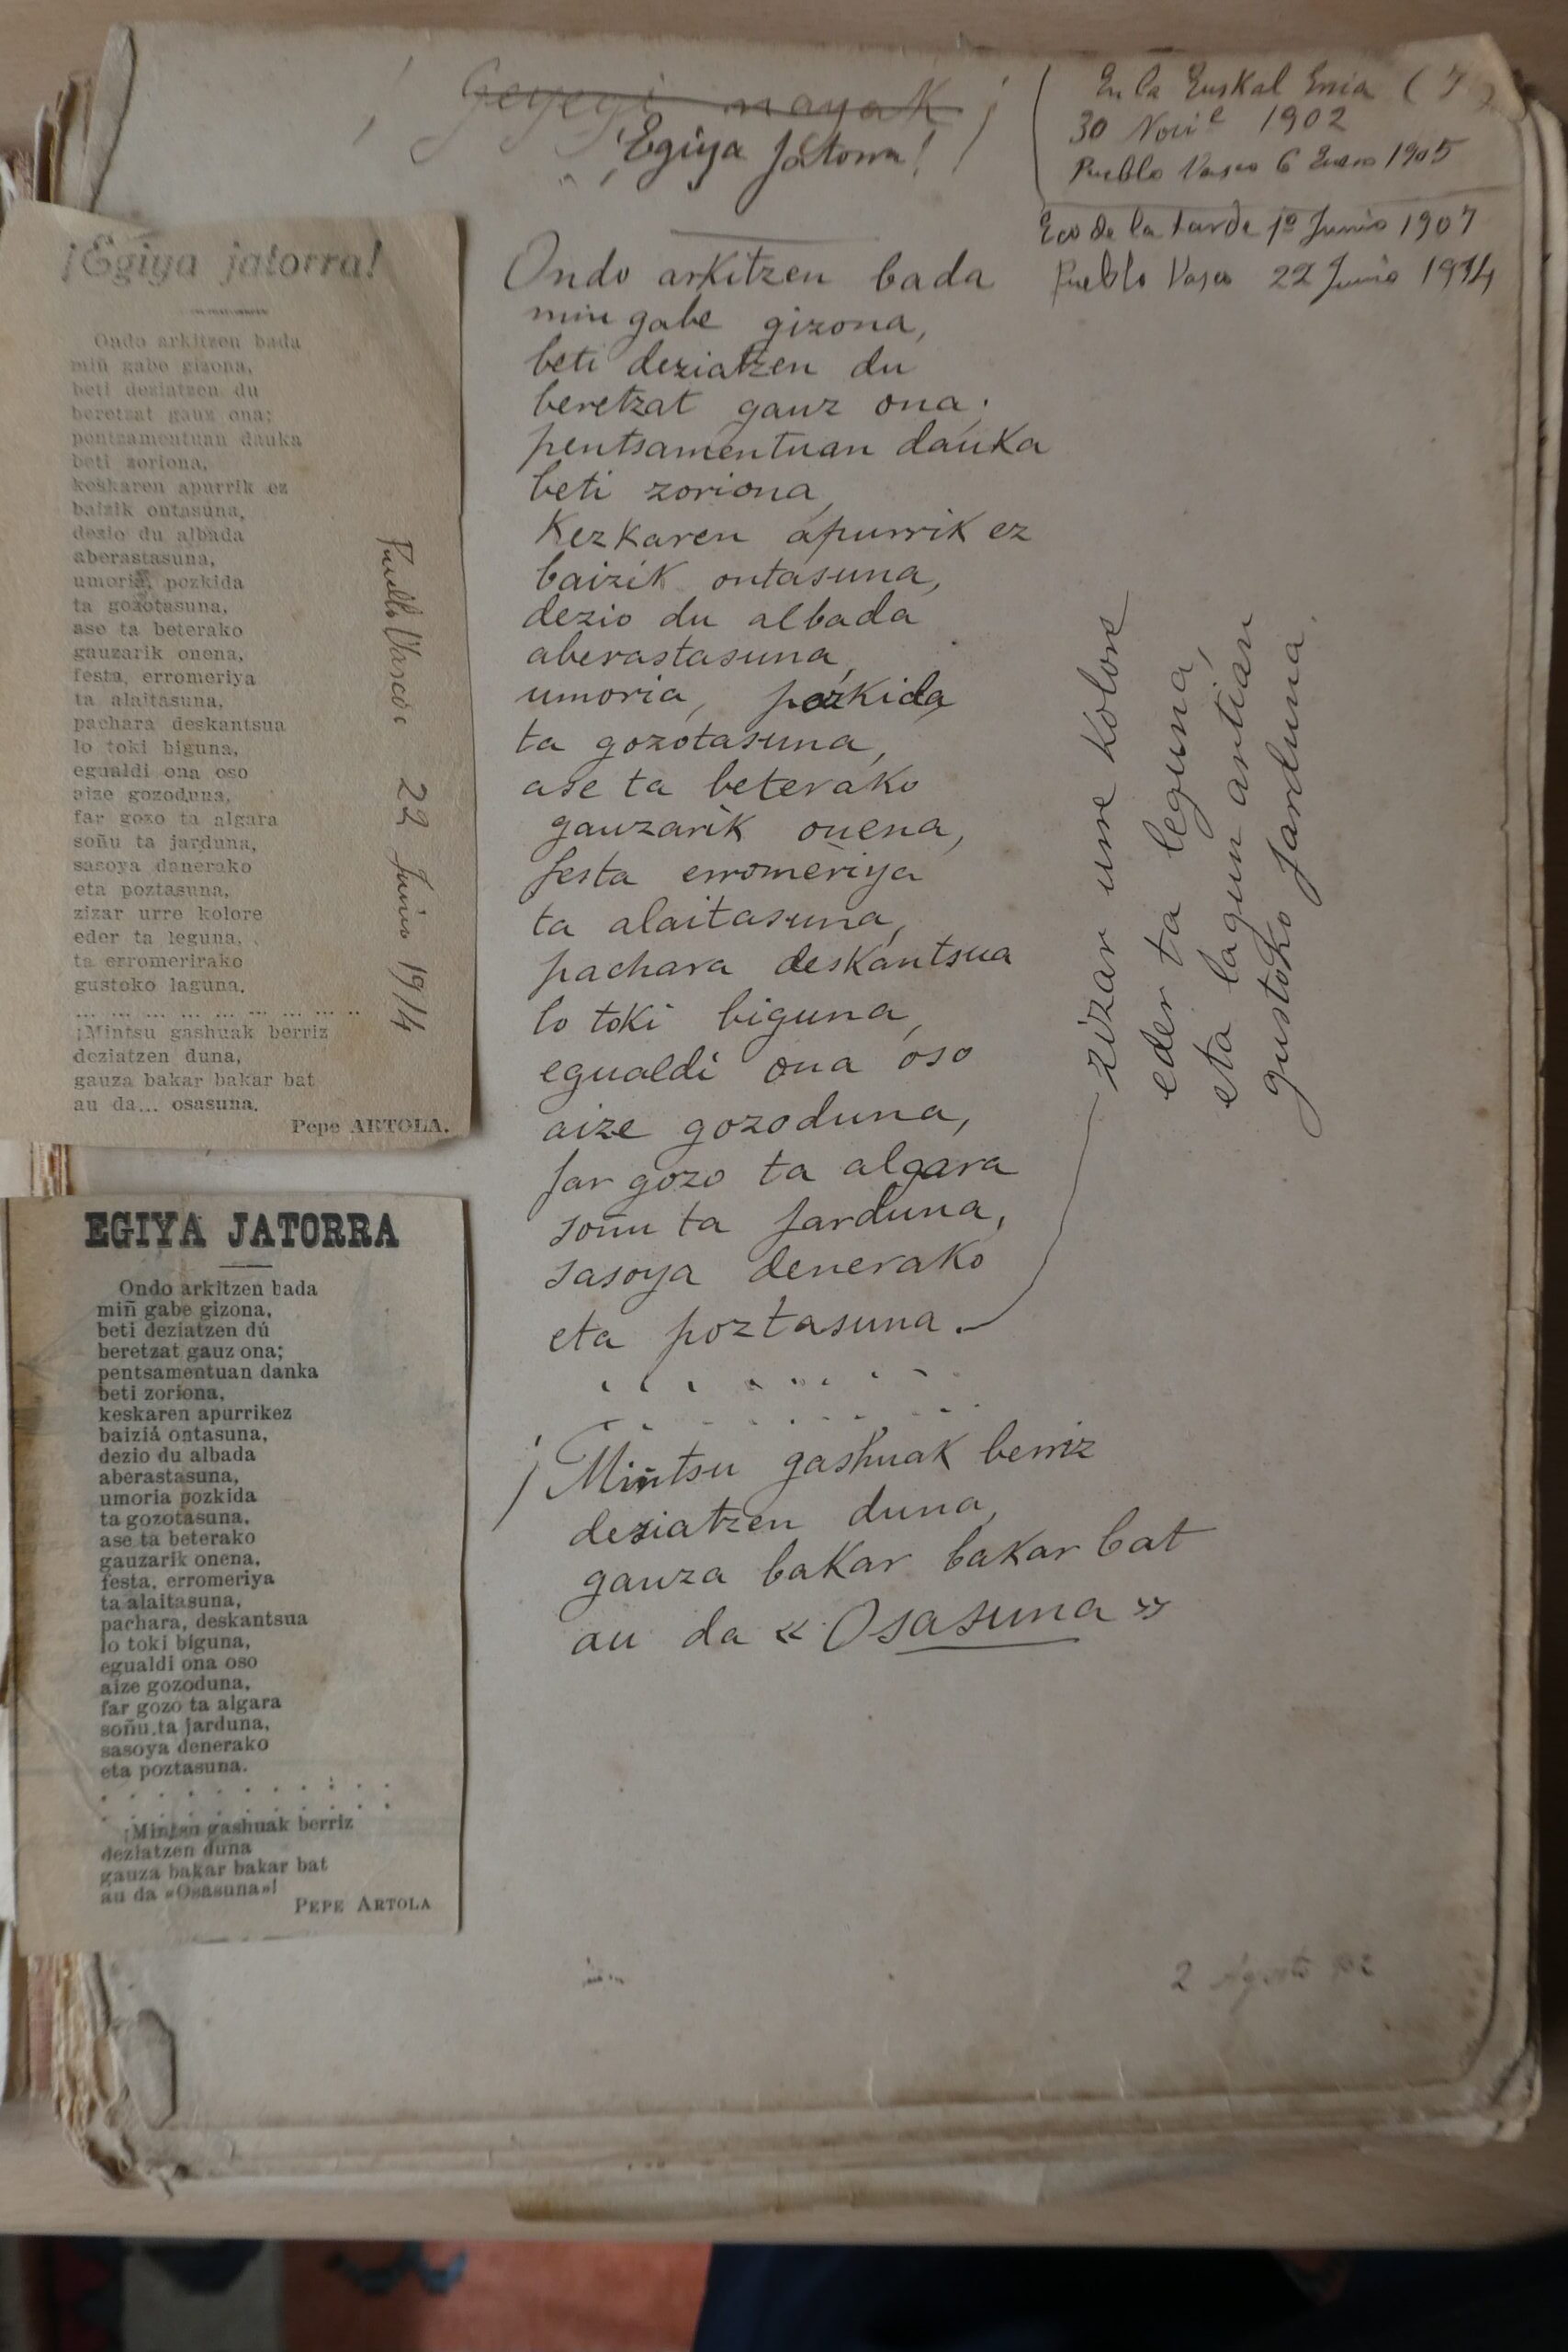 ¡Egiya jatorra!
Ondo arkitzen bada
miñ gabe gizona,
beti deziatzen du
beretzat gauz ona;
pentzamentuan dauka
beti zoriona,
keskaren apurrik ez
baizik ontasuna,
dezio du albada
aberastasuna,
umoria, pozkida
ta gozotasuna,
ase ta beterako
gauzarik onena,
festa, erromeriya
ta alaitasuna,
pachara deskantsua
lo toki biguna,
egualdi ona oso
aize gozoduna,
far gozo ta algara
soñu ta jarduna,
sasoya danerako
eta poztasuna,
zizar urre kolore
eder ta leguna,
ta erromerirako
gustoko laguna.
... ... ... ... ... ... ... ... ..
¡Mintsu gashuak berriz
deziatzen duna,
gauza bakar bakar bat
au da... osasuna.
Pepe ARTOLA.
Pueblo Vasco 22 Junio 1914
EGIYA JATORRA
Ondo arkitzen bada
miñ gabe gizona,
beti deziatzen dú
beretzat gauz ona;
pentsamentuan danka
beti zoriona,
keskaren apurrikez
baiziá ontasuna,
dezio du albada
aberastasuna,
umoria pozkida
ta gozotasuna,
ase ta beterako
gauzarik onena,
festa, erromeriya
ta alaitasuna,
pachara, deskantsua
lo toki biguna,
egualdi ona oso
aize gozoduna,
far gozo ta algara
soñu ta jarduna,
sasoya denerako
eta poztasuna.
. . . . . . . . . .
. . . . . . . . . .
¡Mintsu gashuak berriz
deziatzen duna
gauza bakar bakar bat
au da «Osasuna»!
PEPE ARTOLA
¡ nayak !
¡Egiya Jatorra!
En la Euskal Erria (7)
30 Nov.e 1902
Pueblo Vasco 6 Enero 1905
Eco de la tarde 1º Junio 1907
Pueblo Vasco 22 Junio 1914
Ondo arkitzen bada
min gabe gizona,
beti deziatzen du
beretzat gauz ona;
pentsamentuan dauka
beti zoriona,
Kezkaren apurrik ez
baizik ontasuna,
dezio du albada
aberastasuna,
umoria, pozkida
ta gozotasuna,
ase ta beterako
gauzarik onena,
festa erromeriya
ta alaitasuna,
pachara deskantsua
lo toki biguna,
egualdi ona oso
aize gozoduna,
far gozo ta algara
soñu ta jarduna,
sasoya denerako
eta poztasuna.
zizar urre kolore
eder ta leguna,
eta lagun artian
gustoko jarduna.
. . . . . . . .
. . . . . . . .
¡Miñtsu gashuak berriz
deziatzen duna,
gauza bakar bakar bat
au da «Osasuna»
2 Agosto 902